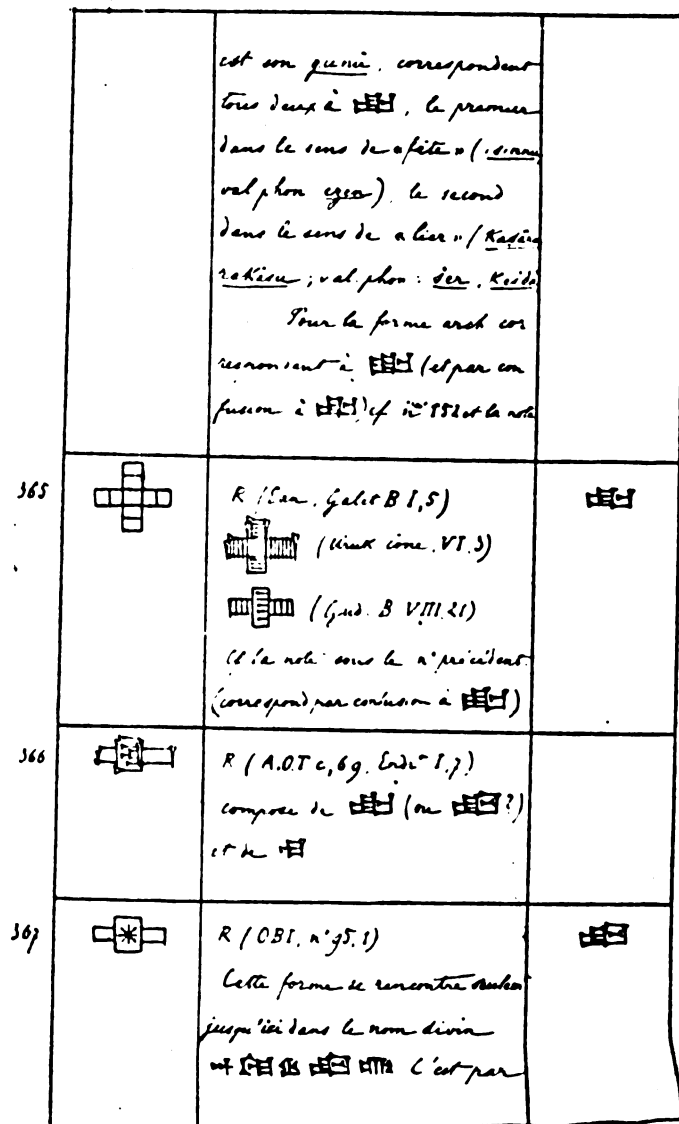 est son gunû, correspondent
tous deux à 𒂡, le premier
dans le sens de « fête » (isinnu,
val phon ezen), le second
dans le sens de « lier » (Kaṣâru
rakâsu ; val. phon : šer, Kešda
Pour la forme arch cor
respondant à 𒂡 (et par con
fusion à 𒂡) cf n° 152 et la note
365
R (Ean. Galet B I, 5)
(Uruk cône. VI. 3)
(Gud. B VIII. 21)
Cf la note sous le n° précédent
(correspond par confusion à 𒂡)
366
R (A.O.T c, 69. I. 7)
compose de 𒂡 (ou ?)
et de
367
R (OBI, n° 95, 1)
Cette forme se rencontre seulem
jusqu'ici dans le nom divin
C'est par